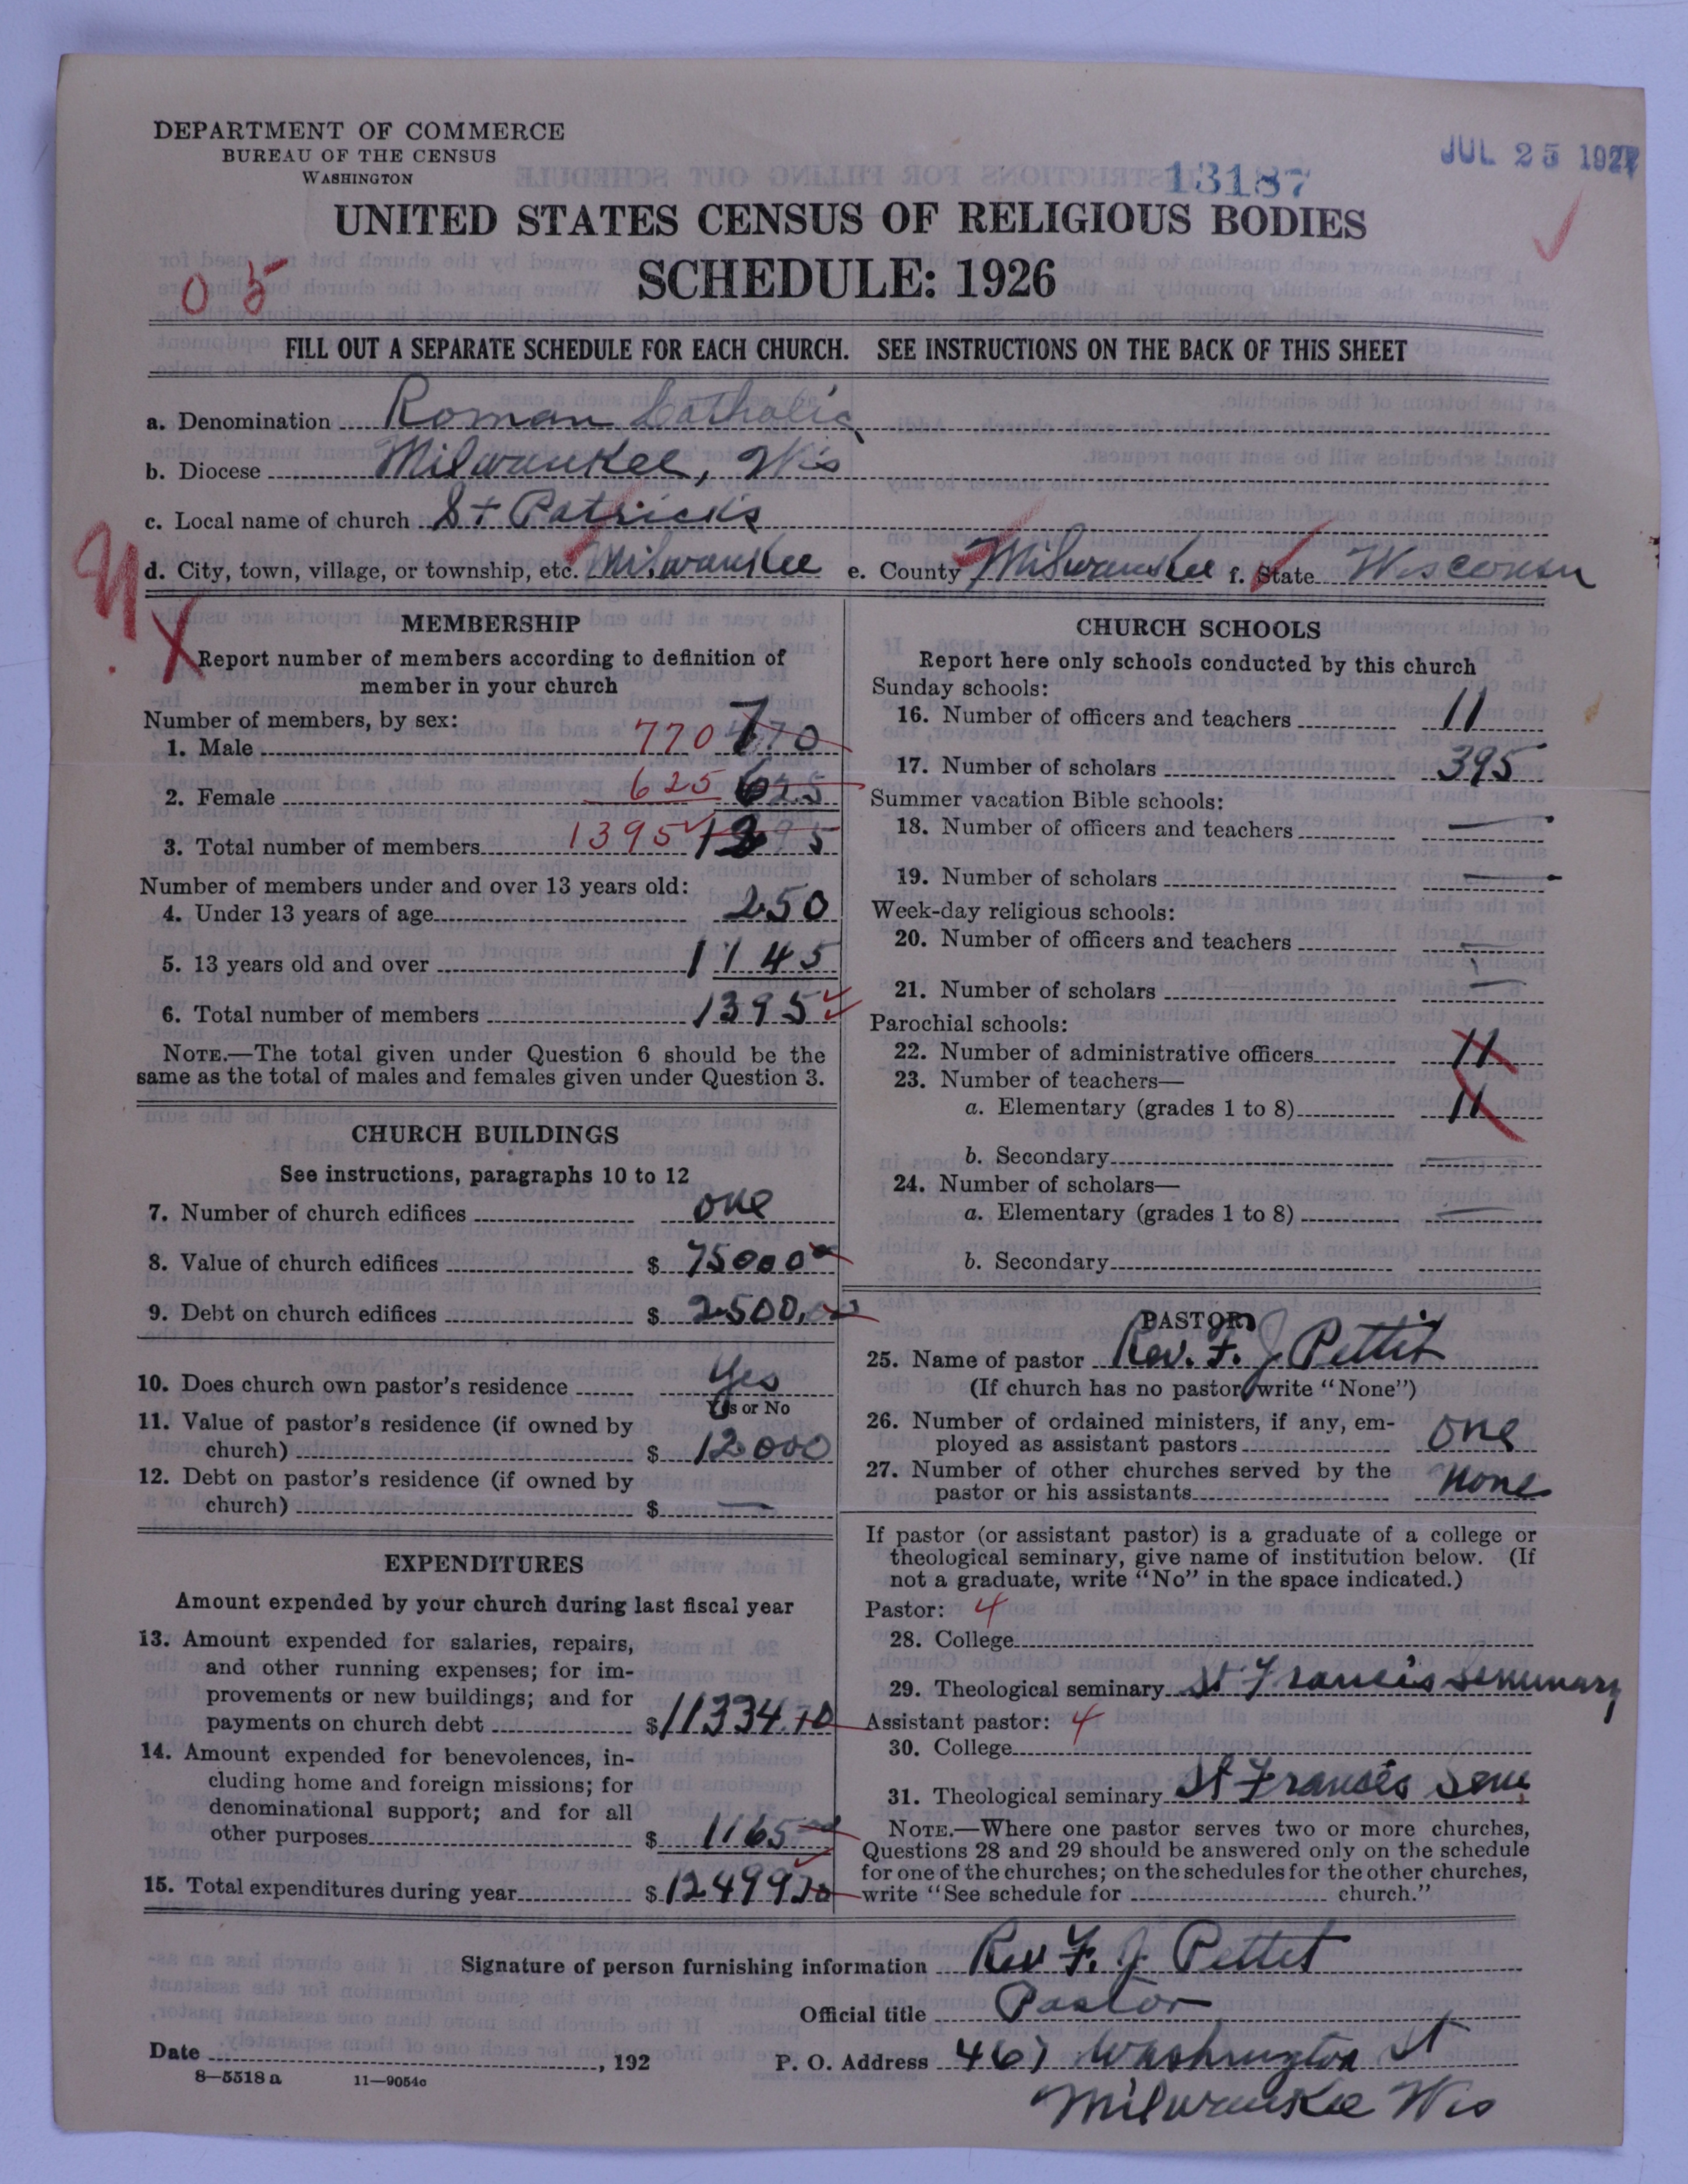 DEPARTMENT OF COMMERCE
BUREAU OF THE CENSUS
WASHINGTON
13187
JUL 25 1927
UNITED STATES CENSUS OF RELIGIOUS BODIES
SCHEDULE: 1926
05
FILL OUT A SEPARATE SCHEDULE FOR EACH CHURCH. SEE INSTRUCTIONS ON THE BACK OF THIS SHEET
a. Denomination Roman Catholic
b. Diocese Milwaukee, Wis
c. Local name of church St Patricks
d. City, town, village, or township, etc. Milwaukee e. County Milwaukee f. State Wisconsin
MEMBERSHIP
Report number of members according to definition of
member in your church
Number of members, by sex:
1. Male 770 770
2. Female 625 625
3. Total number of members 1395 1395
Number of members under and over 13 years old:
4. Under 13 years of age 250
5. 13 years old and over 1145
6. Total number of members 1395
NOTE.—The total given under Question 6 should be the
same as the total of males and females given under Question 3.
CHURCH BUILDINGS
See instructions, paragraphs 10 to 12
7. Number of church edifices one
8. Value of church edifices $ 75000
9. Debt on church edifices $ 2500.
10. Does church own pastor's residence Yes
Yes or No
11. Value of pastor's residence (if owned by
church) $ 12000
12. Debt on pastor's residence (if owned by
church) $ —
EXPENDITURES
Amount expended by your church during last fiscal year
13. Amount expended for salaries, repairs,
and other running expenses; for im-
provements or new buildings; and for
payments on church debt $ 11334.70
14. Amount expended for benevolences, in-
cluding home and foreign missions; for
denominational support; and for all
other purposes $ 1165
15. Total expenditures during year $ 12499 70
CHURCH SCHOOLS
Report here only schools conducted by this church
Sunday schools:
16. Number of officers and teachers 11
17. Number of scholars 395
Summer vacation Bible schools:
18. Number of officers and teachers —
19. Number of scholars —
Week-day religious schools:
20. Number of officers and teachers —
21. Number of scholars —
Parochial schools:
22. Number of administrative officers 11
23. Number of teachers—
a. Elementary (grades 1 to 8) 11
b. Secondary —
24. Number of scholars—
a. Elementary (grades 1 to 8) —
b. Secondary
PASTOR
25. Name of pastor Rev. F. J Pettit
(If church has no pastor write "None")
26. Number of ordained ministers, if any, em-
ployed as assistant pastors one
27. Number of other churches served by the
pastor or his assistants None
If pastor (or assistant pastor) is a graduate of a college or
theological seminary, give name of institution below. (If
not a graduate, write "No" in the space indicated.)
Pastor: 4
28. College
29. Theological seminary St Francis Seminary
Assistant pastor: 4
30. College
31. Theological seminary St Francis Sem
NOTE.—Where one pastor serves two or more churches,
Questions 28 and 29 should be answered only on the schedule
for one of the churches; on the schedules for the other churches,
write "See schedule for church."
Signature of person furnishing information Rev F. J Pettit
Official title Pastor
Date , 192
P. O. Address 461 Washington St
8—5518 a 11—9054c
Milwaukee Wis